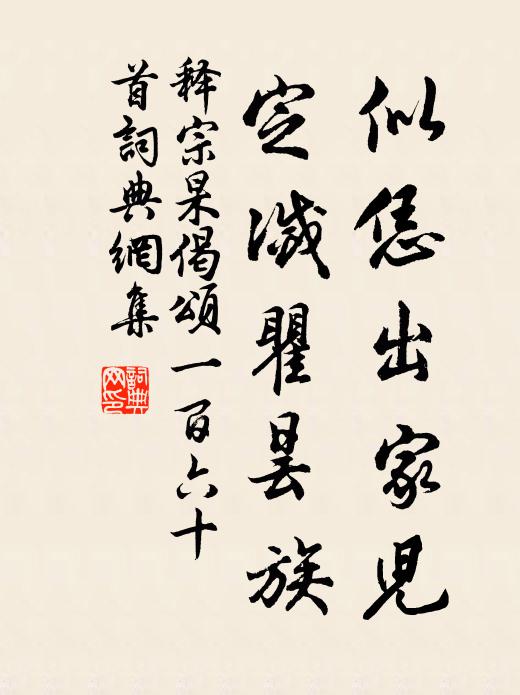 似恁出家兒
定滅瞿曇族
释宗杲偈頌一百六十
首詞典網集
詞典
网印